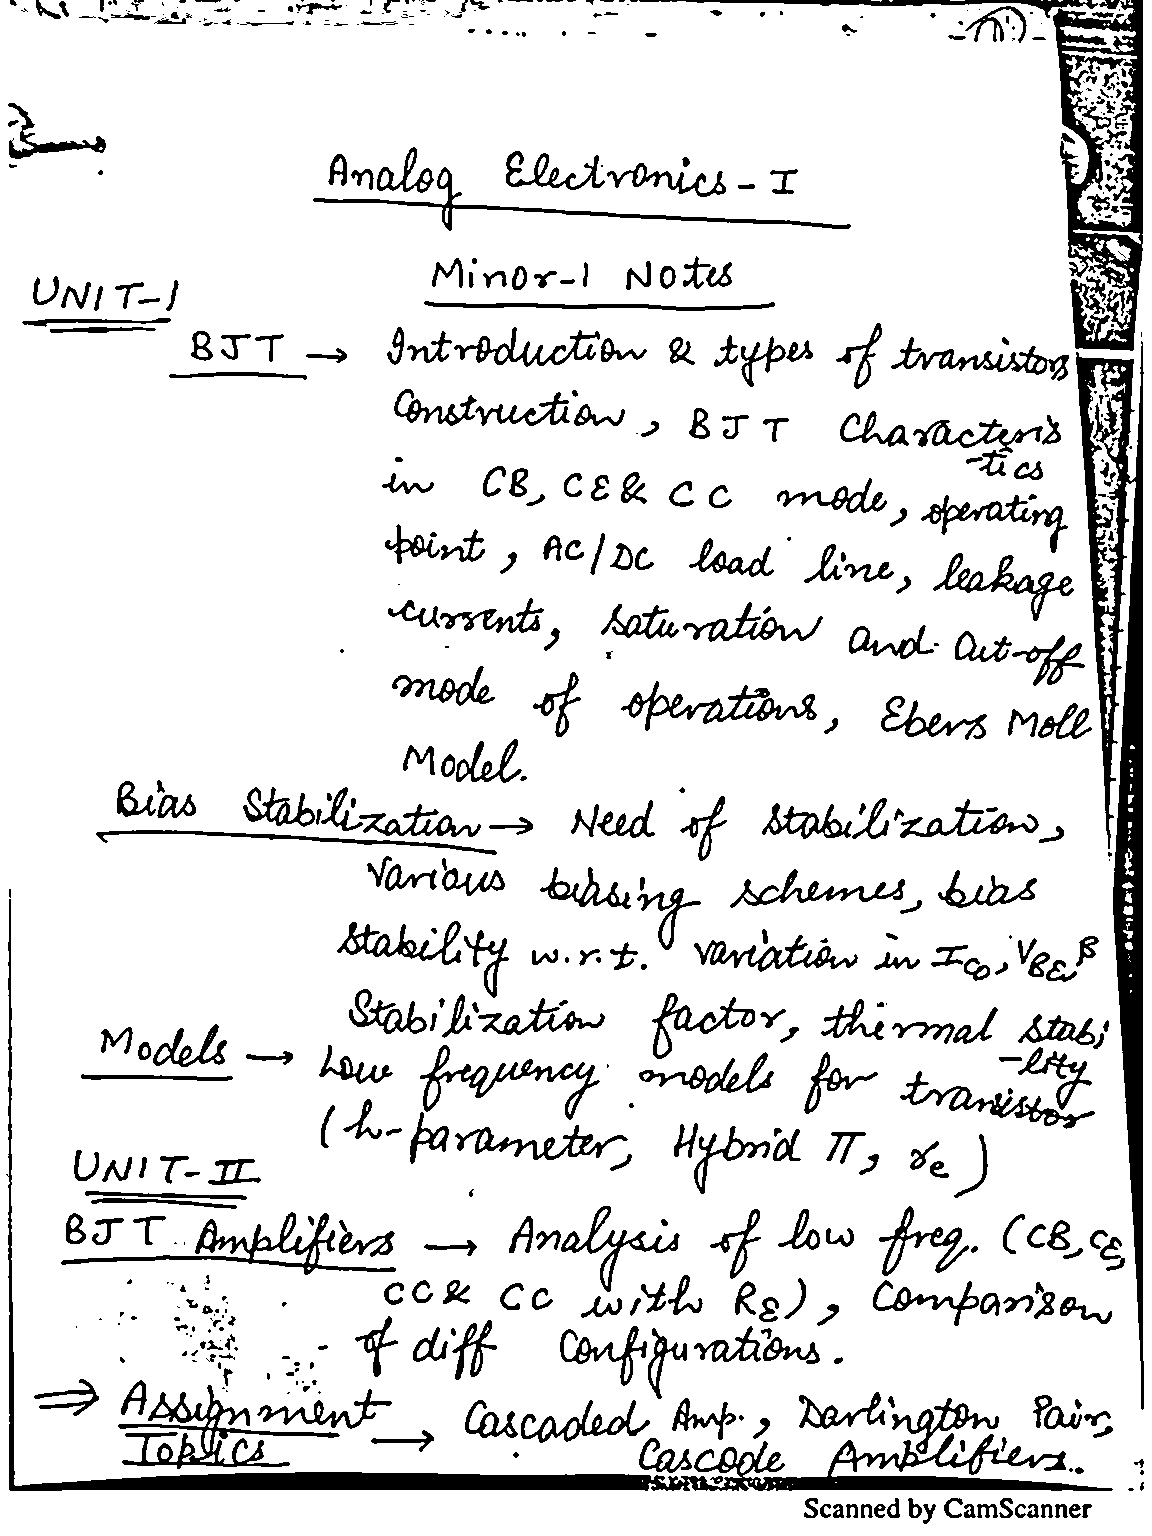 Analog Electronics - I
Minor-1 Notes
UNIT-1
BJT → Introduction & types of transistors
Construction, BJT Characteris
-tics
in CB, CE & CC mode, operating
point, AC/DC load line, leakage
currents, saturation and Cut-off
mode of operations, Ebers Moll
Model.
Bias Stabilization → Need of stabilization,
various biasing schemes, bias
stability w.r.t. variation in ICO, VBE, β
Stabilization factor, thermal stabi
-lity
Models → Low frequency models for transistor
(h-parameter, Hybrid π, re)
UNIT-II
BJT Amplifiers → Analysis of low freq. (CB, CE,
CC & CC with RE), Comparison
of diff Configurations.
⇒ Assignment
Topics → Cascaded Amp., Darlington Pair,
Cascode Amplifiers.
Scanned by CamScanner